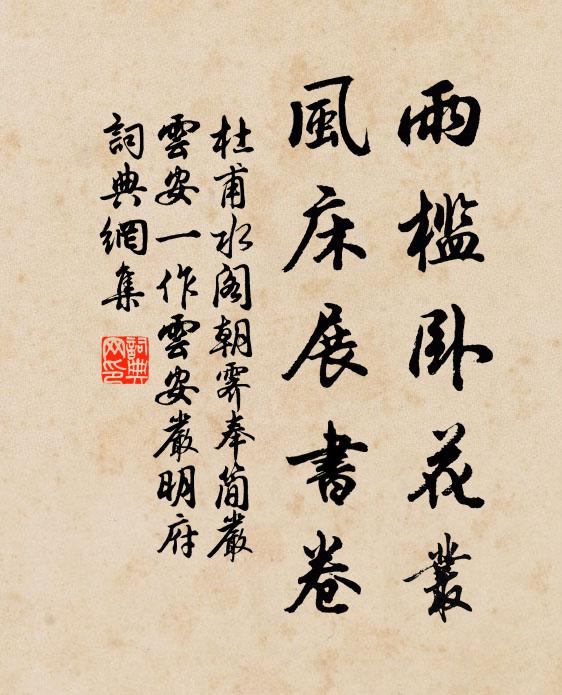 雨檻臥花叢
風床展書卷
杜甫水閣朝霽奉簡嚴
雲安一作雲安嚴明府
詞典網集
詞典網印